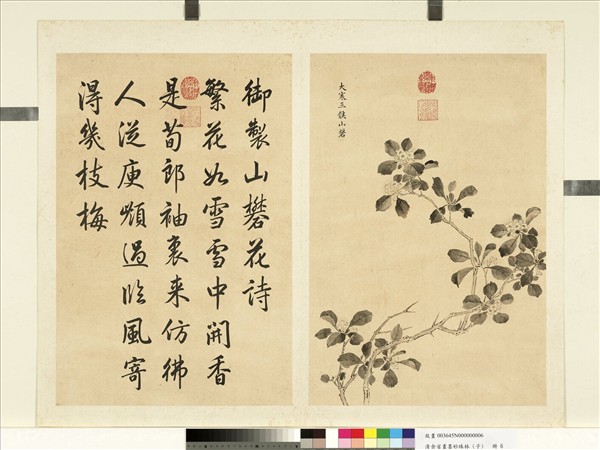 大寒三候山礬
御製山礬花詩
繁花如雪雪中開香
是荀郎袖裏来仿彿
人從庾嶺過臨風寄
得幾枝梅
故畫 003645N000000006
清余省畫墨妙珠林（子） 冊 6